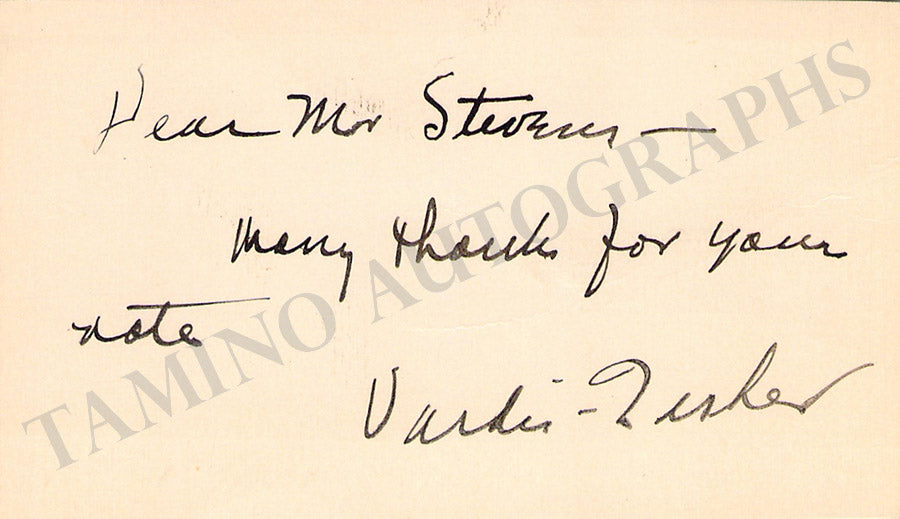 Dear Mr Stevens —
Many thanks for your
note
Vardis Fisher
TAMINO AUTOGRAPHS